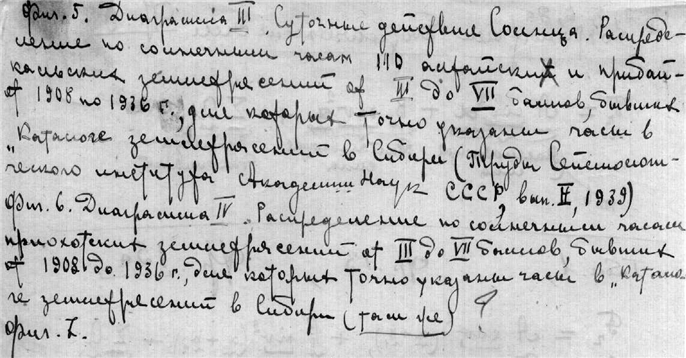 Фиг. 5. Диаграмма III. Суточные действие Солнца. Распреде-
ление по солнечным часам 110 алтайских и прибай-
кальских землетрясений от III до VII баллов, бывших
от 1908 по 1936 г., для которых точно указаны часы в
„Каталоге землетрясений в Сибири (Труды Сейсмологи-
ческого института Академии Наук СССР, вып. , 1939)
Фиг. 6. Диаграмма IV. Распределение по солнечным часам
приохотских землетрясений от III до VII баллов, бывших
от 1908 до 1936 г., для которых точно указаны часы в „Катало-
ге землетрясений в Сибири (там же) ?
Фиг. 7.